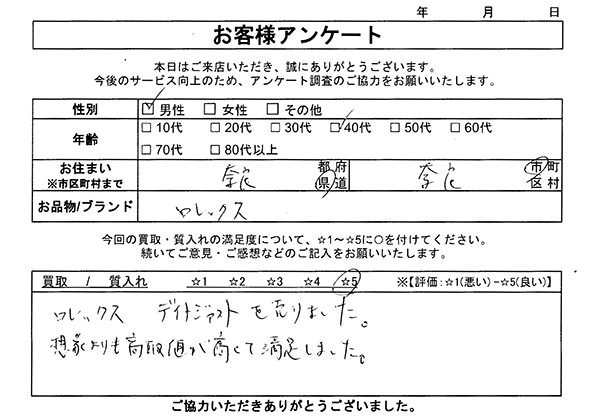 年 月 日
お客様アンケート
本日はご来店いただき、誠にありがとうございます。
今後のサービス向上のため、アンケート調査のご協力をお願いいたします。
性別 ☑ 男性 □ 女性 □ その他
年齢 □ 10代 □ 20代 □ 30代 ☑ 40代 □ 50代 □ 60代
□ 70代 □ 80代以上
お住まい ※市区町村まで 奈良 都 府 県 道 奈良 市 町 区 村
お品物/ブランド ロレックス
今回の買取・質入れの満足度について、☆1～☆5に○を付けてください。
続いてご意見・ご感想などのご記入をお願いいたします。
買取 / 質入れ ☆1 ☆2 ☆3 ☆4 ☆5 ※【評価:☆1(悪い)－☆5(良い)】
ロレックス デイトジャストを売りました。
想像よりも高取値が高くて満足しました。
ご協力いただきありがとうございました。